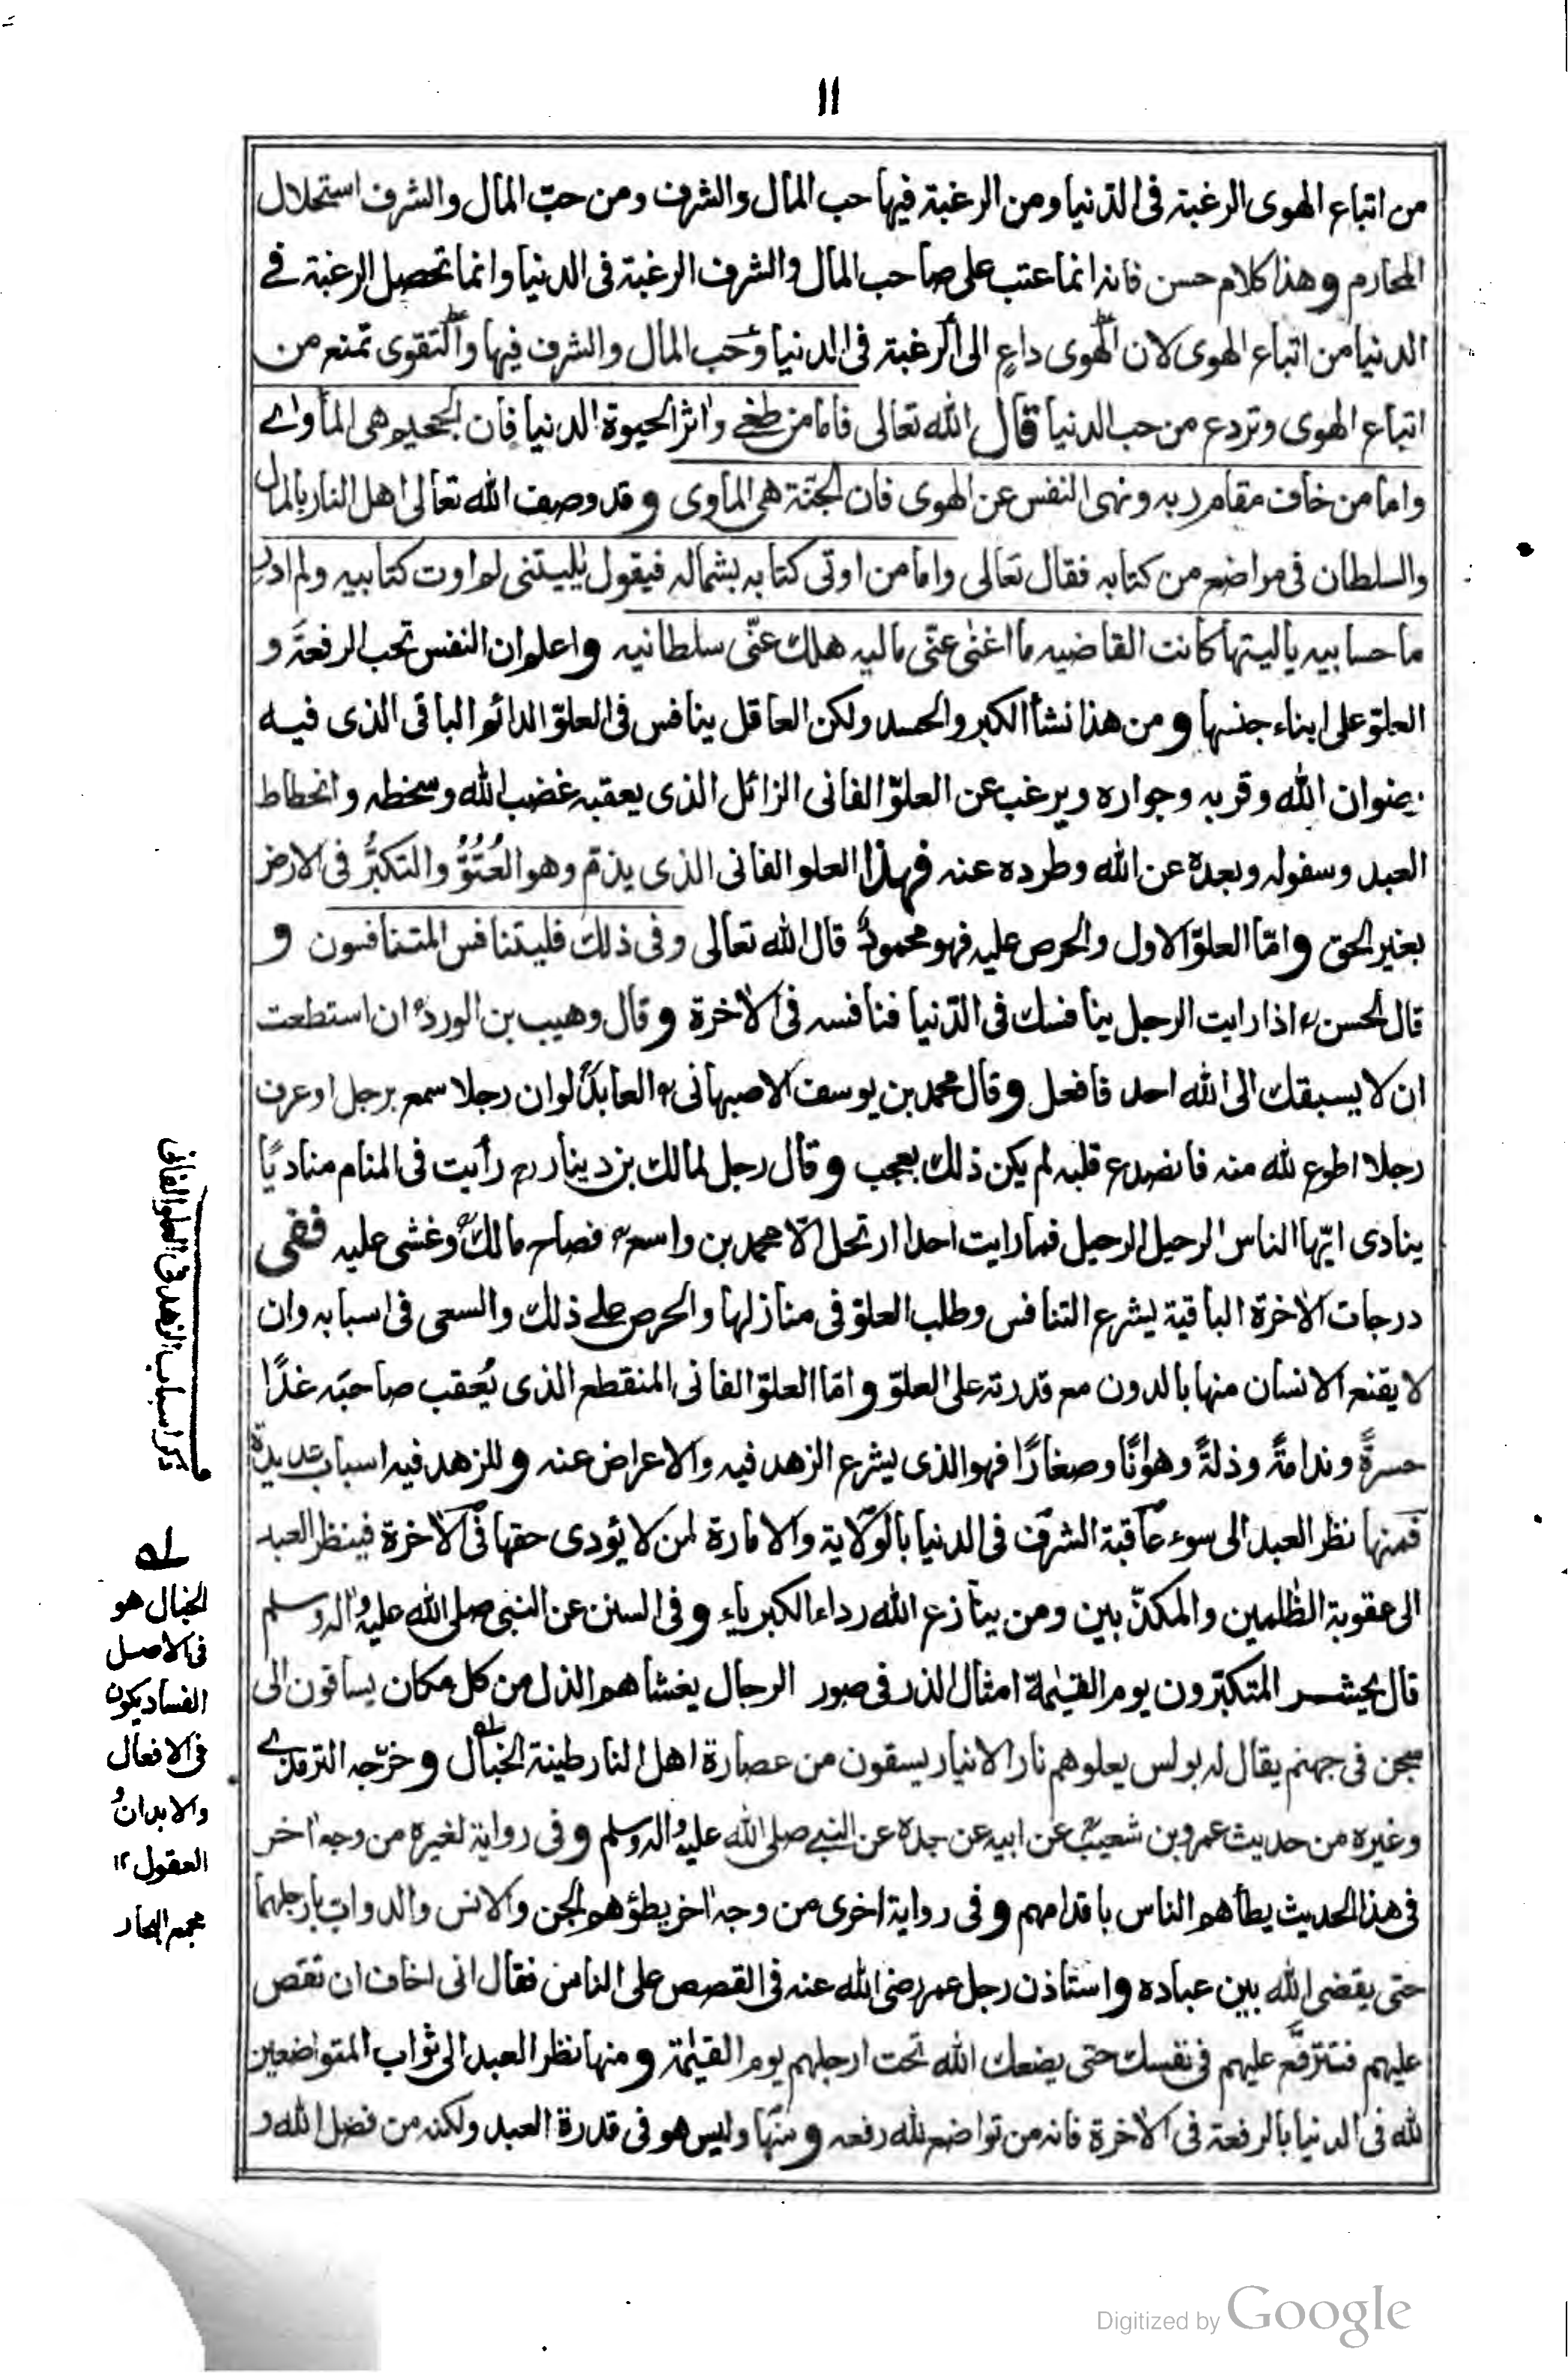 ١١
من اتباع الهوى الرغبة فى الدنيا ومن الرغبة فيها حب المال والشرف ومن حبّ المال والشرف استحلال
المحارم وهذا كلام حسن فانه انما عتب على صاحب المال والشرف الرغبة فى الدنيا وانما تحصل الرغبة فے
الدنيا من اتباع الهوى لان الهوى داعٍ الى الرغبة فى الدنيا وحب المال والشرف فيها والتقوى تمنع من
اتباع الهوى وتردع من حب الدنيا قال الله تعالى فاما من طغے واٰثر الحيوة الدنيا فان الجحيم هى الماواے
واما من خاف مقام ربه ونهى النفس عن الهوى فان الجنّة هى الماوى وقد وصف الله تعالى اهل النار بالمال
والسلطان فى مواضع من كتابه فقال تعالى واما من اوتى كتابه بشماله فيقول يٰليتنى لم اوت كتابيه ولم ادر
ما حسابيه ياليتها كانت القاضيه ما اغنٰى عنّى ماليه هلك عنّى سلطانيه واعلم ان النفس تحب الرفعة و
العلوّ على ابناء جنسها ومن هذا نشأ الكبر والحسد ولكن العاقل ينافس فى العلوّ الدائم الباقى الذى فيه
رضوان الله وقربه وجواره ويرغب عن العلوّ الفانى الزائل الذى يعقبه غضب الله وسخطه وانحطاط
العبد وسفوله وبعده عن الله وطرده عنه فهذا العلو الفانى الذى يذمّ وهو العُتُوُّ والتكبُّر فى الارض
بغير الحق وامّا العلوّ الاول والحرص عليه فهو محمودٌ قال الله تعالى وفى ذلك فليتنافس المتنافسون و
قال الحسنؒ اذا رايت الرجل ينافسك فى الدّنيا فنافسه فى الاٰخرة وقال وهيب بن الوردؒ ان استطعت
ان لا يسبقك الى الله احد فافعل وقال محمد بن يوسف الاصبهانىؒ العابد لو ان رجلا سمع برجل او عرف
رجلا اطوع لله منه فانصدع قلبه لم يكن ذلك بعجب وقال رجل لمالك بن دينار رح رأيت فى المنام مناديًا
ينادى ايّها الناس الرحيل الرحيل فما رايت احدا ارتحل الّا محمد بن واسعؒ فصاح مالكؒ وغشى عليه ففى
درجات الاٰخرة الباقية يشرع التنافس وطلب العلوّ فى منازلها والحرص علے ذلك والسعى فى اسبابه وان
لا يقنع الانسان منها بالدون مع قدرته على العلوّ وامّا العلوّ الفانى المنقطع الذى يُعقب صاحبَه غدًا
حسرةً وندامةً وذلةً وهوانًا وصغارًا فهو الذى يشرع الزهد فيه والاعراض عنه وللزهد فيه اسباب عديدة
فمنها نظر العبد الى سوء عاقبة الشرف فى الدنيا بالولاية والامارة لمن لا يؤدى حقها فى الاٰخرة فينظر العبد
الى عقوبة الظٰلمين والمكذّبين ومن ينازع الله رداء الكبرياء وفى السنن عن النبى صلى الله عليه واٰله وسلم
قال يحشر المتكبّرون يوم القيٰمة امثال الذر فى صور الرجال يغشاهم الذل من كل مكان يساقون الى
سجن فى جهنم يقال له بولس يعلوهم نار الانيار يسقون من عصارة اهل النار طينة الخبال وخرّجه الترمذے
وغيره من حديث عمرو بن شعيب عن ابيه عن جده عن النبے صلى الله عليه واٰله وسلم وفى رواية لغيره من وجه اٰخر
فى هذا الحديث يطأهم الناس باقدامهم وفى رواية اخرى من وجه اٰخر يطؤهم الجن والانس والدواب بارجلهما
حتى يقضى الله بين عباده واستاذن رجل عمر رضى الله عنه فى القصص على الناس فقال انى اخاف ان تقص
عليهم فتترفّع عليهم فى نفسك حتى يضعك الله تحت ارجلهم يوم القيٰمة ومنها نظر العبد الى ثواب المتواضعين
لله فى الدنيا بالرفعة فى الاٰخرة فانه من تواضع لله رفعه ومنها وليس هو فى قدرة العبد ولكنه من فضل الله و
ذكر اسباب الزهد فى العلو الفانى
لـه
الخبال هو
فى الاصل
الفساد يكون
فى الافعال
والابدان و
العقول ١٢
مجمع البحار
Digitized by Google